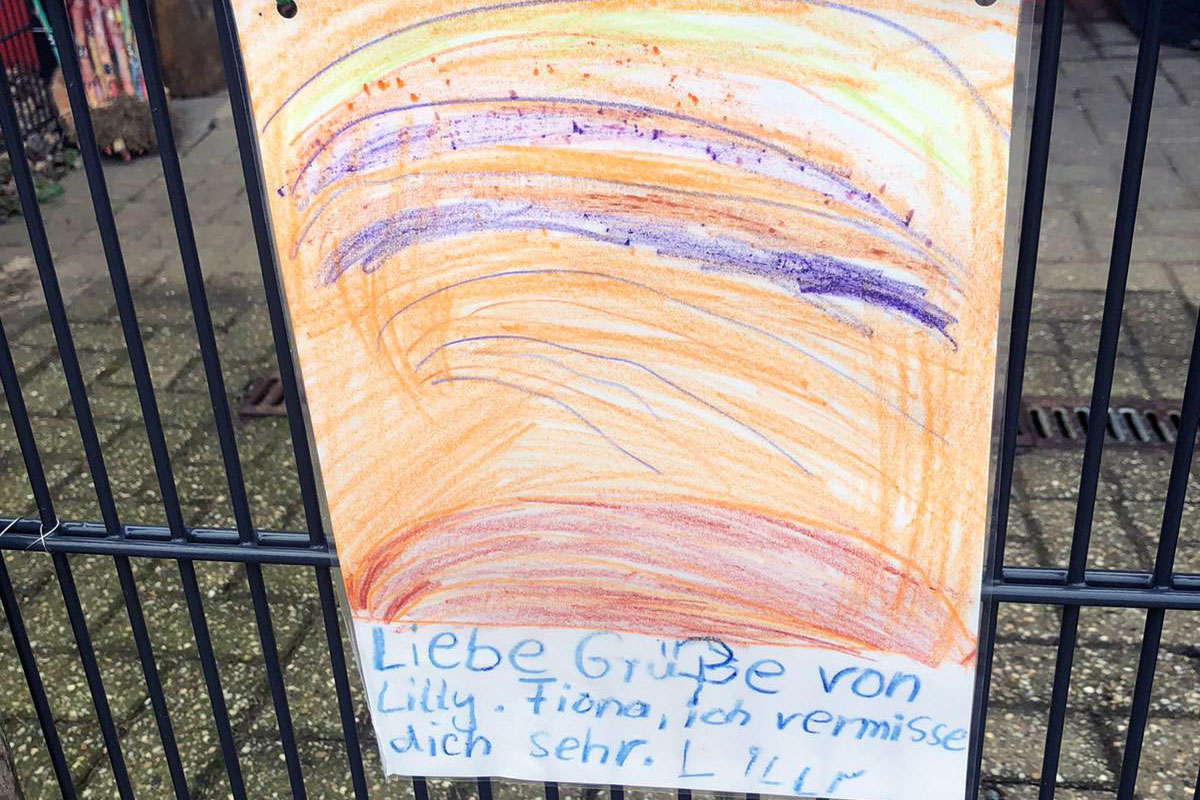 Liebe Grüße von
Lilly. Fiona, ich vermisse
dich sehr. LILLY